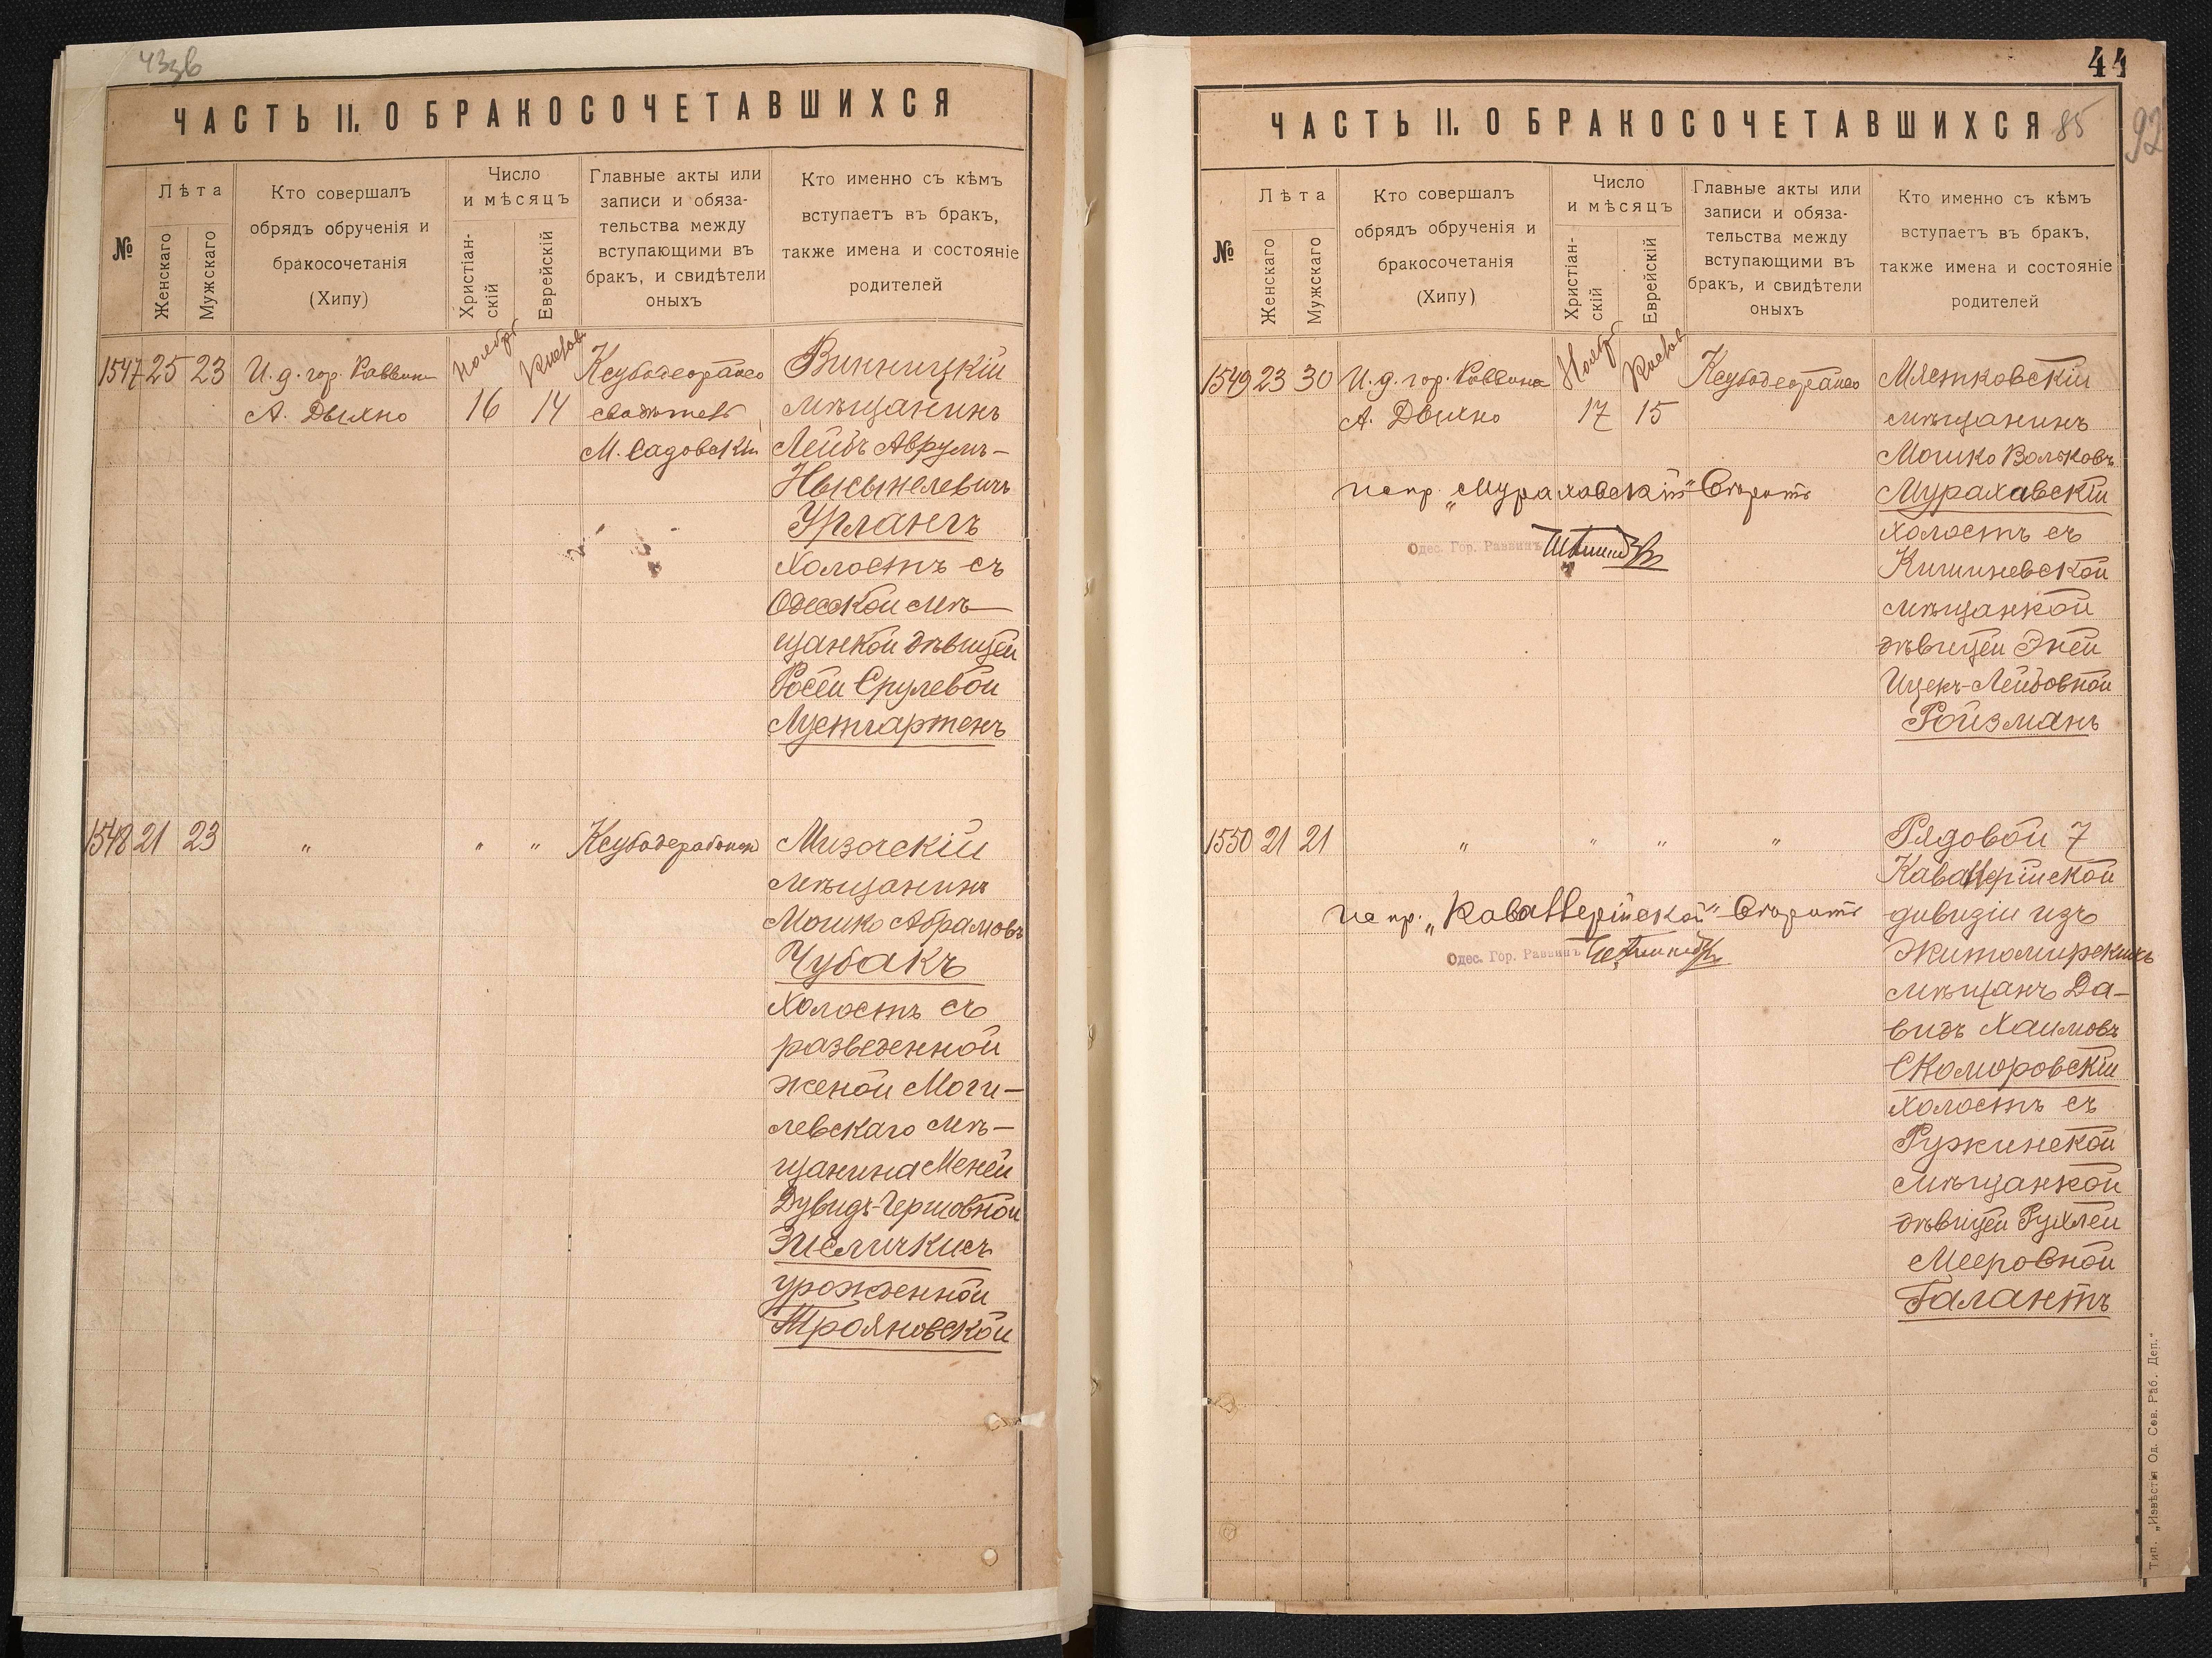 43зв
ЧАСТЬ II. О БРАКОСОЧЕТАВШИХСЯ
№
Лѣта
Женскаго
Мужскаго
Кто совершалъ
обрядъ обрученія и
бракосочетанія
(Хипу)
Число
и мѣсяцъ
Христіан-
скій
Еврейскій
Главные акты или
записи и обяза-
тельства между
вступающими въ
бракъ, и свидѣтели
оныхъ
Кто именно съ кѣмъ
вступаетъ въ бракъ,
также имена и состояніе
родителей
1547 25 23
И.д. гор. Раввин
А. Дыхно
Ноябр
16
Кислов
14
М. Садовскій
Винницкій
мѣщанинъ
Лейбъ Аврумъ-
Нысынелевичъ
Урлангъ
холостъ съ
Одесской мѣ-
щанкой дѣвицей
Росей Срулевой
Лустгартенъ
1548 21 23
" " "
Мизоскій
мѣщанинъ
Мошко Абрамовъ
Чубакъ
холостъ съ
разведенной
женой Моги-
левскаго мѣ-
щанина Меней
Дувидъ-Гершовной
урожденной
Трояновской
44
ЧАСТЬ II. О БРАКОСОЧЕТАВШИХСЯ
85
92
№
Лѣта
Женскаго
Мужскаго
Кто совершалъ
обрядъ обрученія и
бракосочетанія
(Хипу)
Число
и мѣсяцъ
Христіан-
скій
Еврейскій
Главные акты или
записи и обяза-
тельства между
вступающими въ
бракъ, и свидѣтели
оныхъ
Кто именно съ кѣмъ
вступаетъ въ бракъ,
также имена и состояніе
родителей
1549 23 30
И.д. гор. Раввина
А. Дыхно
Ноябр
17
Кислов
15
Мястковскій
мѣщанинъ
Мошко Волковъ
Мурахавскій
холостъ съ
Кишиневской
мѣщанкой
дѣвицей Эней
Ицекъ-Лейбовной
Ройзманъ
Испр. „Мураховскій" вѣрить
Одес. Гор. Раввинъ
1550 21 21
" " " "
Рядовой 7
Кавалерійской
дивизіи изъ
Житомирскихъ
мѣщанъ Да-
видъ Хаимовъ
Скоморовскій
холостъ съ
Ружинской
мѣщанкой
дѣвицей Рухлей
Мееровной
Галантъ
Испр. „Кавалерійской" вѣрить
Одес. Гор. Раввинъ
Тип. „Извѣстія Од. Сов. Раб. Деп."